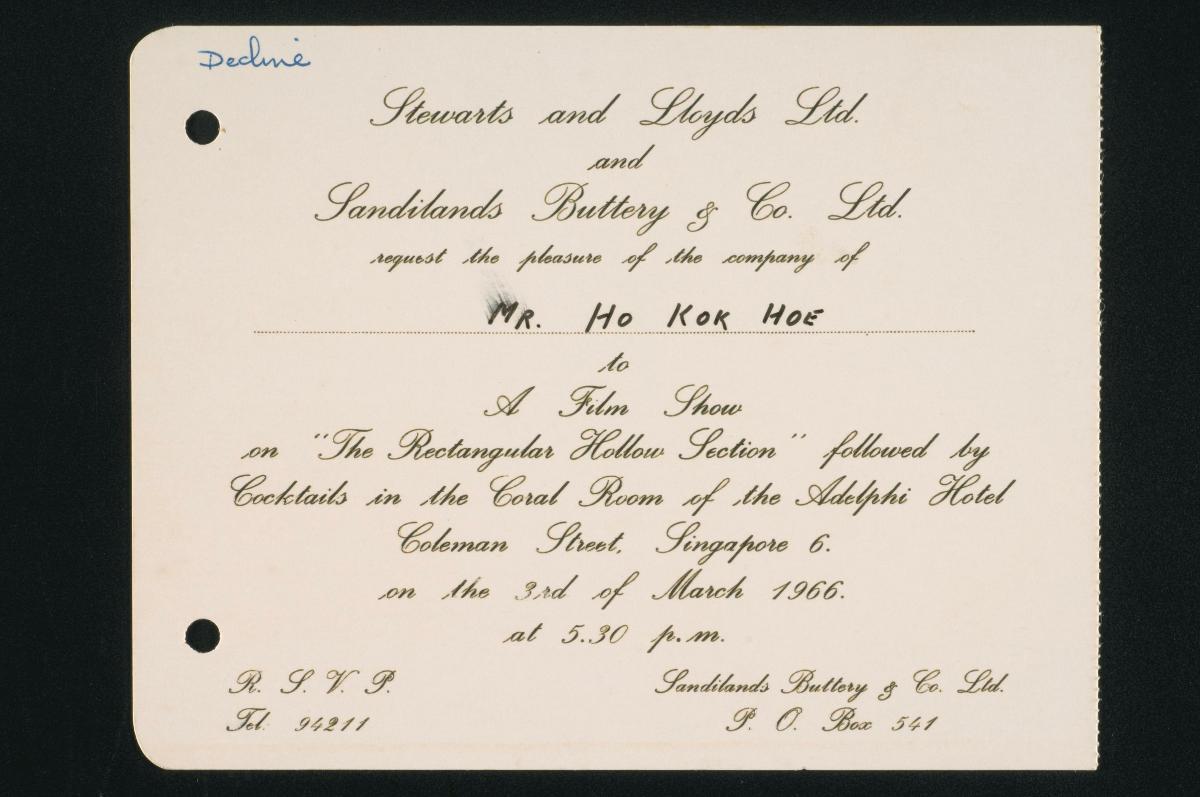 Decline
Stewarts and Lloyds Ltd.
and
Sandilands Buttery & Co. Ltd.
request the pleasure of the company of
MR. HO KOK HOE
to
A Film Show
on "The Rectangular Hollow Section" followed by
Cocktails in the Coral Room of the Adelphi Hotel
Coleman Street, Singapore 6.
on the 3rd of March 1966.
at 5.30 p.m.
R. S. V. P.
Tel: 94211
Sandilands Buttery & Co. Ltd.
P. O. Box 541